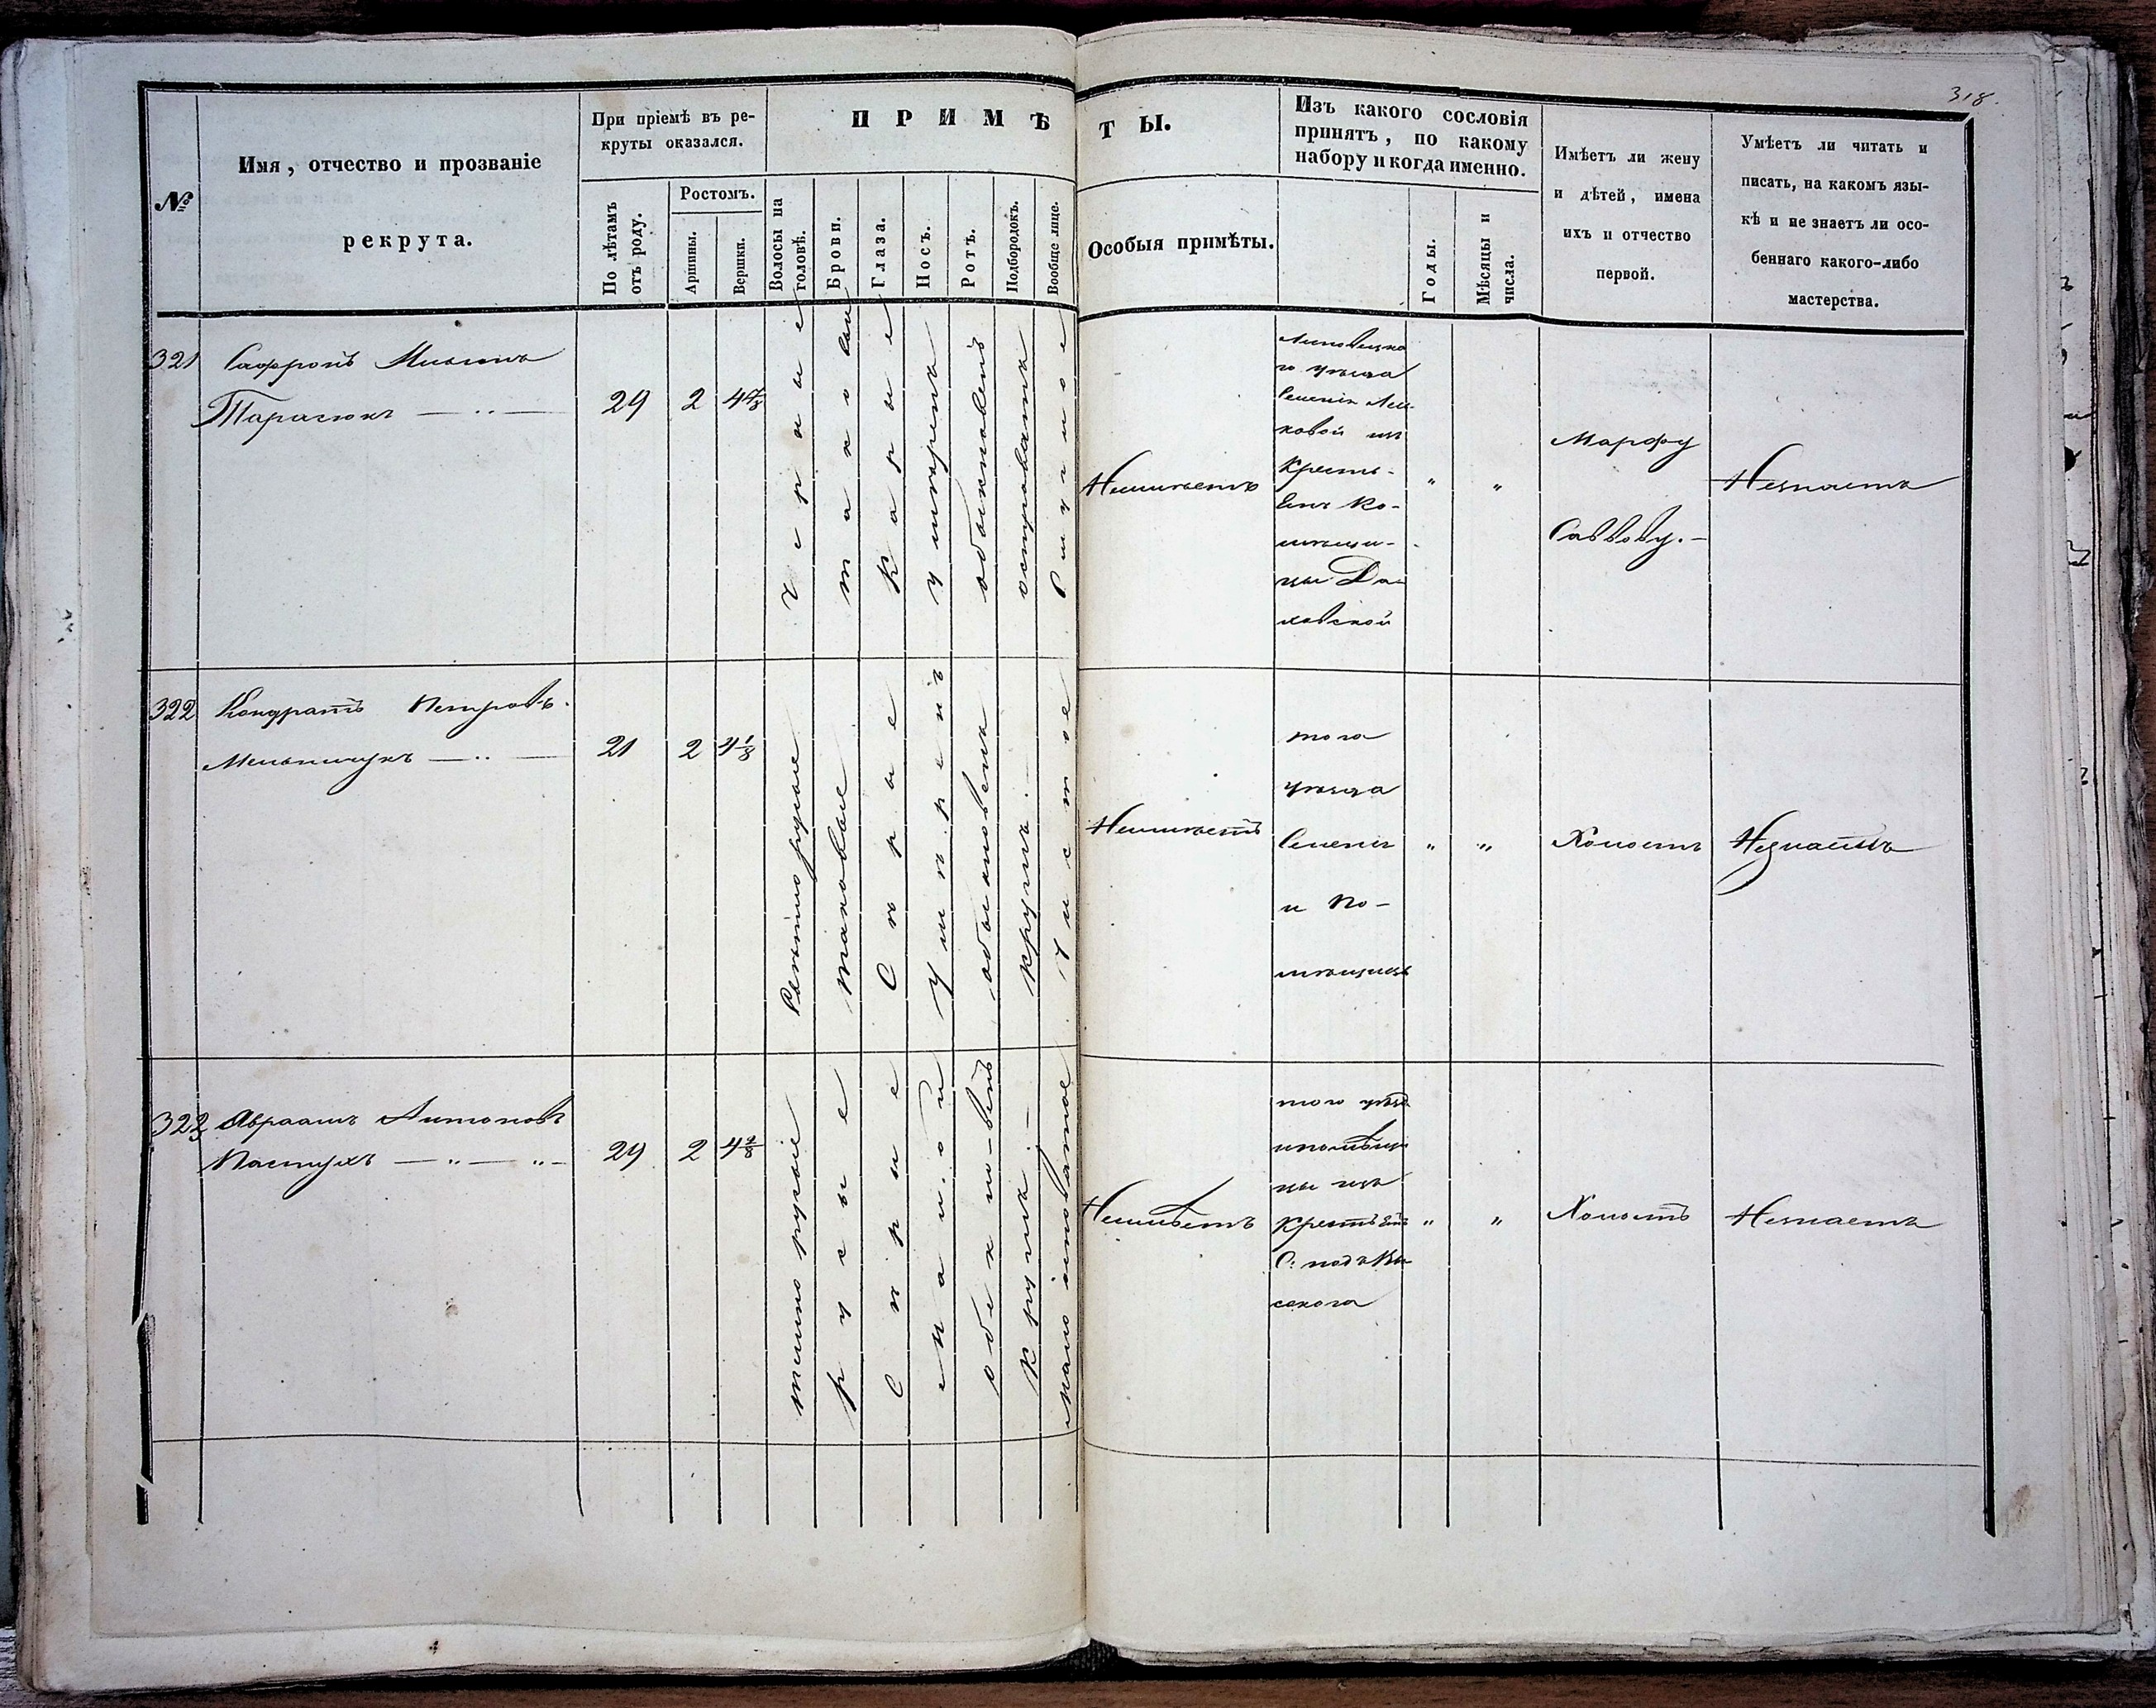 318.
№
Имя, отчество и прозваніе
рекрута.
При пріемѣ въ ре-
круты оказался.
По лѣтамъ
отъ роду.
Ростомъ.
Аршины.
Вершки.
ПРИМѢТЫ.
Волосы на
головѣ.
Брови.
Глаза.
Носъ.
Ротъ.
Подбородокъ.
Вообще лице.
Особыя примѣты.
Изъ какого сословія
принятъ, по какому
набору и когда именно.
Годы.
Мѣсяцы и
числа.
Имѣетъ ли жену
и дѣтей, имена
ихъ и отчество
первой.
Умѣетъ ли читать и
писать, на какомъ язы-
кѣ и не знаетъ ли осо-
беннаго какого-либо
мастерства.
321
Сафронъ
Тарасюкъ — „ —
29
2
4
Черные
таковыи
Карые
умѣренъ
обыкновенъ
островатъ
Смуглое
Неимѣетъ
Липовецка
го уѣзда
Селенія
ковой изъ
Кресть-
янъ По-
мѣщи-
цы
„
„
Марфу
Саввову. —
Незнаетъ
322
Кондратъ Петровъ.
Мельничукъ — „ —
21
2
4 1/8
Свѣтлорусые
таковые
Сѣрые
Умѣренъ
обыкновенъ
круглъ. —
чистое
Неимѣетъ
того
уѣзда
Селенія
и По-
мѣщицы
„
„
Холостъ
Незнаетъ
323
Авраамъ Антоновъ
Пастухъ — „ — „ —
29
2
4 2/8
темно русые
русые
Сѣрые
малой
обекно-венъ
Круглъ. —
мало
Неимѣетъ
того уѣзда
ипомѣщи
цы изъ
Крестьянъ
С: подъ Вы
сокого
„
„
Холостъ
Незнаетъ